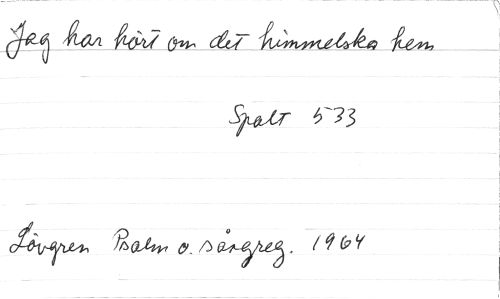 Jag har hört om det himmelska hem
Spalt 533
Lövgren Psalm o. sångreg. 1964